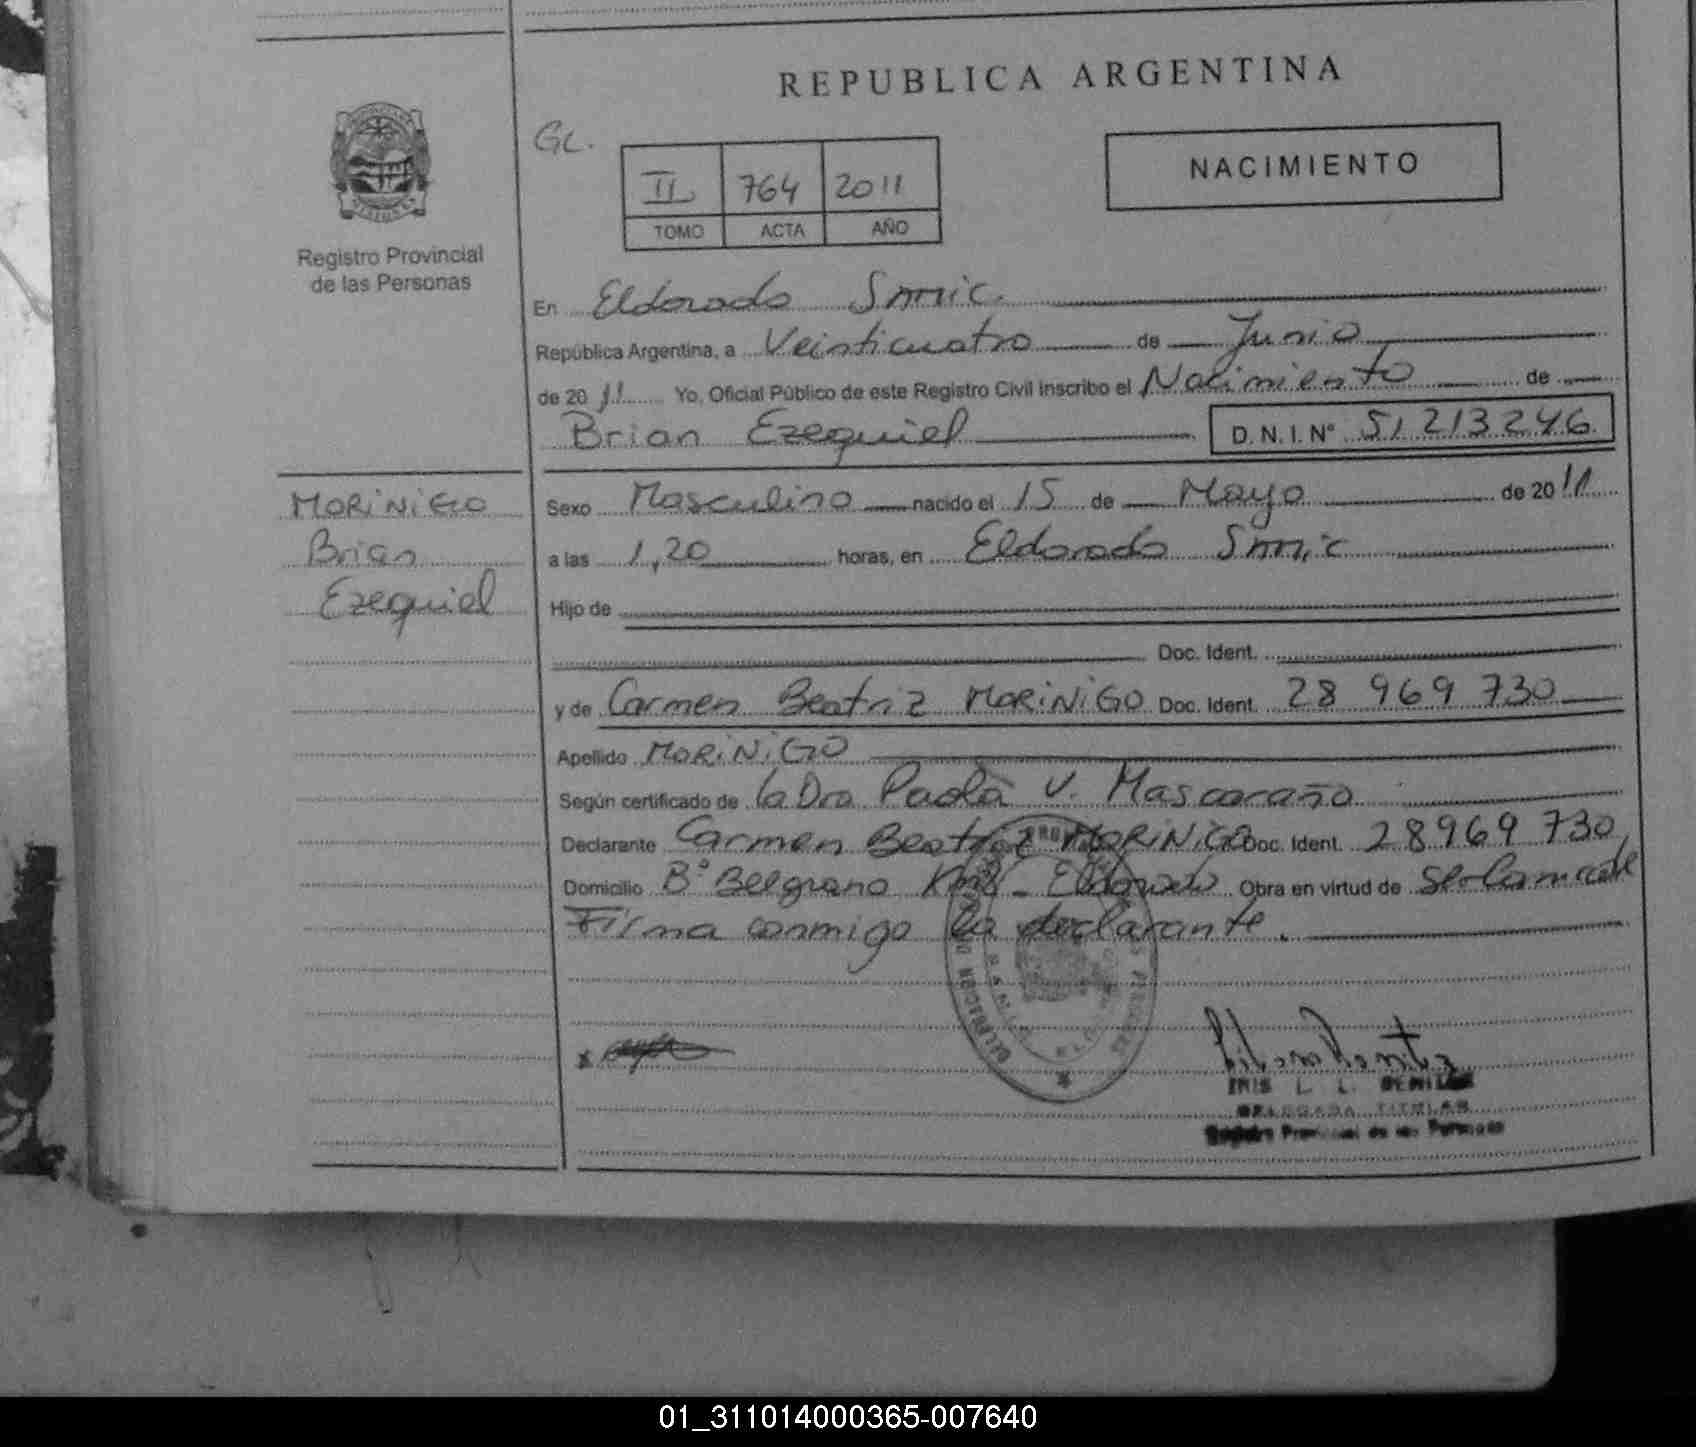 REPUBLICA ARGENTINA
GL.
NACIMIENTO
II 764 2011
TOMO ACTA AÑO
Registro Provincial
de las Personas
En Eldorado Smic.
República Argentina, a Veinticuatro de Junio
de 2011 Yo, Oficial Público de este Registro Civil inscribo el Nacimiento de
Brian Ezequiel D.N.I.Nº 51213246
MORINIGO
Brian
Ezequiel
Sexo Masculino nacido el 15 de Mayo de 2011
a las 1,20 horas, en Eldorado Smic
Hijo de
Doc. Ident.
y de Carmen Beatriz MORINIGO Doc. Ident. 28 969 730
Apellido MORINIGO
Según certificado de la Dra Paola V. Mascaraño
Declarante Carmen Beatriz MORINIGO Doc. Ident. 28969 730
Domicilio Bº Belgrano Eldorado Obra en virtud de
Firma conmigo la declarante.
DELEGADA TITULAR
Registro Provincial de las Personas
01_311014000365-007640